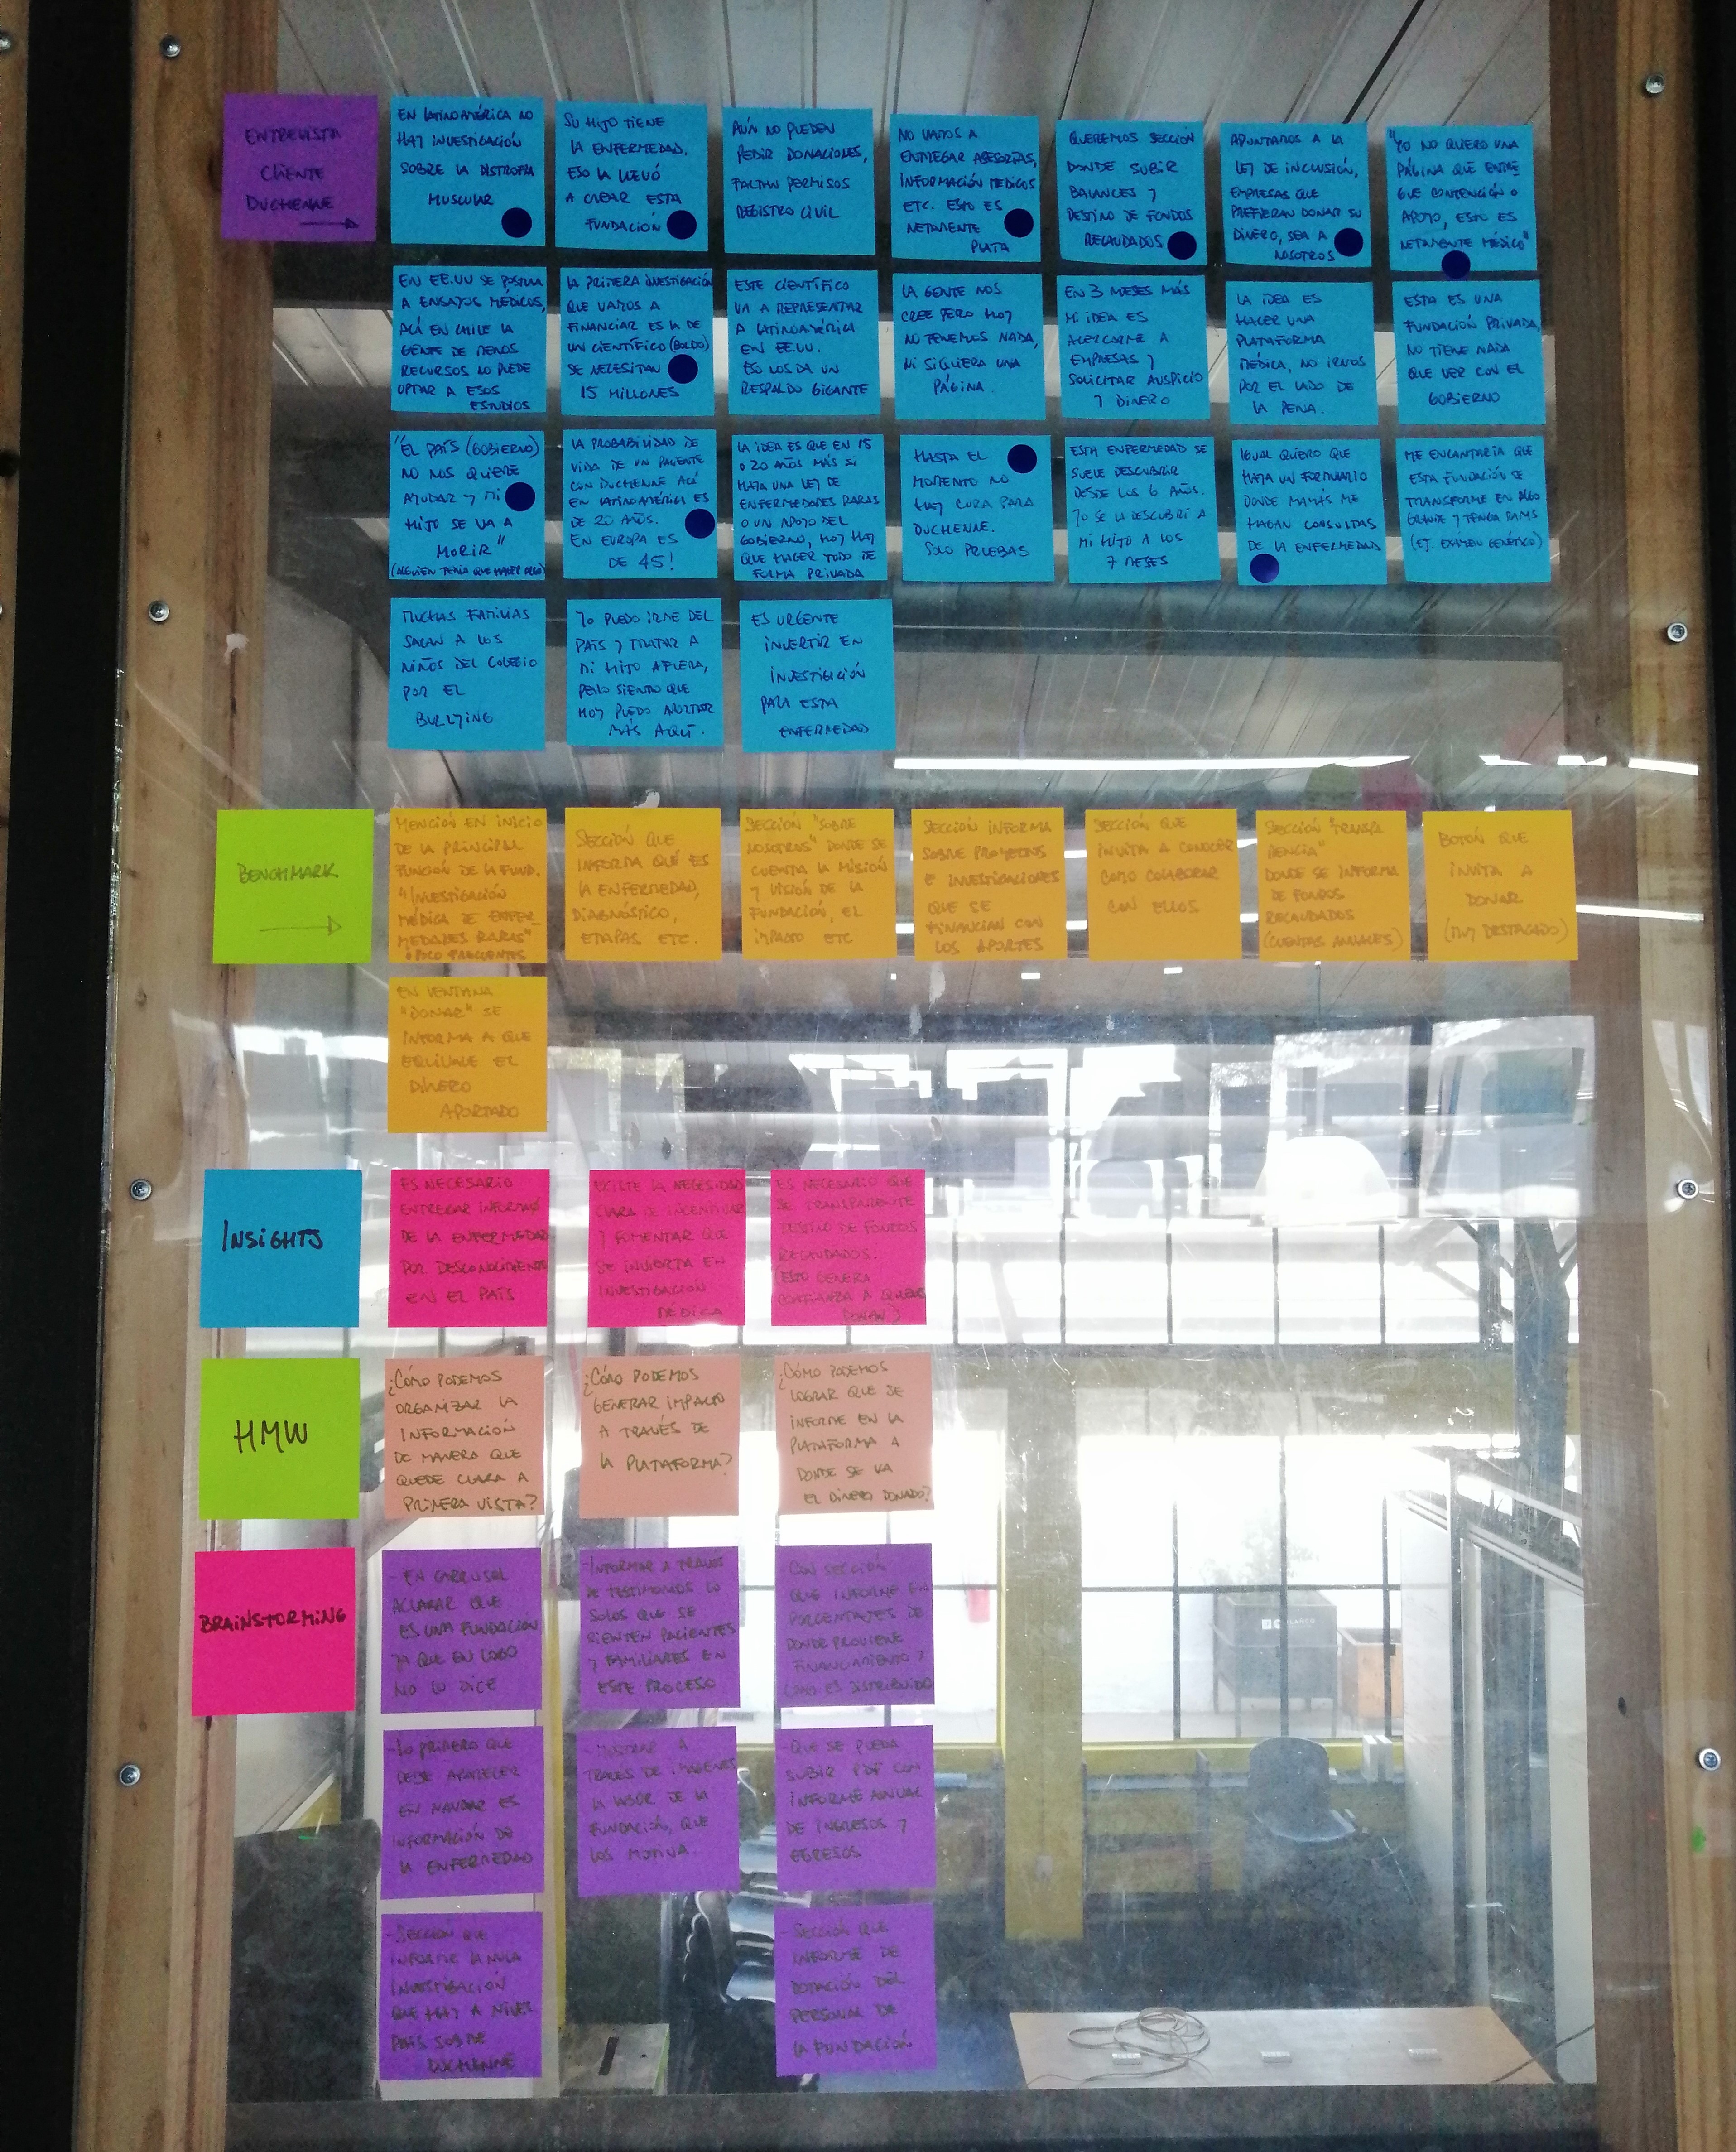 ENTREVISTA
CLIENTE
DUCHENNE
EN LATINOAMÉRICA NO
HAY INVESTIGACIÓN
SOBRE LA DISTROFIA
MUSCULAR
SU HIJO TIENE
LA ENFERMEDAD.
ESO LA LLEVÓ
A CREAR ESTA
FUNDACIÓN
AÚN NO PUEDEN
PEDIR DONACIONES,
FALTAN PERMISOS
REGISTRO CIVIL
NO VAMOS A
ENTREGAR ASESORÍAS,
INFORMACIÓN MÉDICOS
ETC. ESTO ES
NETAMENTE
PLATA
QUEREMOS SECCIÓN
DONDE SUBIR
BALANCES Y
DESTINO DE FONDOS
RECAUDADOS
APUNTAMOS A LA
LEY DE INCLUSIÓN,
EMPRESAS QUE
PREFIERAN DONAR SU
DINERO, SEA A
NOSOTROS
"YO NO QUIERO UNA
PÁGINA QUE ENTRE
GUE CONTENCIÓN O
APOYO, ESTO ES
NETAMENTE MÉDICO"
EN EE.UU SE POSTULA
A ENSAYOS MÉDICOS,
ACÁ EN CHILE LA
GENTE DE MENOS
RECURSOS NO PUEDE
OPTAR A ESOS
ESTUDIOS
LA PRIMERA INVESTIGACIÓN
QUE VAMOS A
FINANCIAR ES LA DE
UN CIENTÍFICO (BOLDO)
SE NECESITAN
15 MILLONES
ESTE CIENTÍFICO
VA A REPRESENTAR
A LATINOAMÉRICA
EN EE.UU.
ESO LOS DA UN
RESPALDO GIGANTE
LA GENTE NOS
CREE PERO HOY
NO TENEMOS NADA,
NI SIQUIERA UNA
PÁGINA.
EN 3 MESES MÁS
MI IDEA ES
ACERCARME A
EMPRESAS Y
SOLICITAR AUSPICIO
Y DINERO
LA IDEA ES
HACER UNA
PLATAFORMA
MÉDICA, NO IRNOS
POR EL LADO DE
LA PENA.
ESTA ES UNA
FUNDACIÓN PRIVADA,
NO TIENE NADA
QUE VER CON EL
GOBIERNO
"EL PAÍS (GOBIERNO)
NO NOS QUIERE
AYUDAR Y MI
HIJO SE VA A
MORIR"
(ALGUIEN TENÍA QUE HACER ALGO)
LA PROBABILIDAD DE
VIDA DE UN PACIENTE
CON DUCHENNE ACÁ
EN LATINOAMÉRICA ES
DE 20 AÑOS.
EN EUROPA ES
DE 45!
LA IDEA ES QUE EN 15
O 20 AÑOS MÁS SI
HAYA UNA LEY DE
ENFERMEDADES RARAS
O UN APOYO DEL
GOBIERNO, HOY HAY
QUE HACER TODO DE
FORMA PRIVADA
HASTA EL
MOMENTO NO
HAY CURA PARA
DUCHENNE.
SOLO PRUEBAS
ESTA ENFERMEDAD SE
SUELE DESCUBRIR
DESDE LOS 6 AÑOS.
YO SE LA DESCUBRÍ A
MI HIJO A LOS
7 MESES
IGUAL QUIERO QUE
HAYA UN FORMULARIO
DONDE MAMÁS ME
HAGAN CONSULTAS
DE LA ENFERMEDAD
ME ENCANTARÍA QUE
ESTA FUNDACIÓN SE
TRANSFORME EN ALGO
GRANDE Y TENGA RAMAS
(EJ. EXAMEN GENÉTICO)
MUCHAS FAMILIAS
SACAN A LOS
NIÑOS DEL COLEGIO
POR EL
BULLYING
YO PUEDO IRME DEL
PAÍS Y TRATAR A
MI HIJO AFUERA,
PERO SIENTO QUE
HOY PUEDO APORTAR
MÁS AQUÍ.
ES URGENTE
INVERTIR EN
INVESTIGACIÓN
PARA ESTA
ENFERMEDAD
BENCHMARK
MENCIÓN EN INICIO
DE LA PRINCIPAL
FUNCIÓN DE LA FUND.
"INVESTIGACIÓN
MÉDICA DE ENFER-
MEDADES RARAS"
O POCO FRECUENTES
SECCIÓN QUE
INFORMA QUÉ ES
LA ENFERMEDAD,
DIAGNÓSTICO,
ETAPAS ETC.
SECCIÓN "SOBRE
NOSOTROS" DONDE SE
CUENTA LA MISIÓN
Y VISIÓN DE LA
FUNDACIÓN, EL
IMPACTO ETC
SECCIÓN INFORMA
SOBRE PROYECTOS
E INVESTIGACIONES
QUE SE
FINANCIAN CON
LOS APORTES
SECCIÓN QUE
INVITA A CONOCER
COMO COLABORAR
CON ELLOS
SECCIÓN "TRANSPA
RENCIA"
DONDE SE INFORMA
DE FONDOS
RECAUDADOS
(CUENTAS ANUALES)
BOTÓN QUE
INVITA A
DONAR
(MUY DESTACADO)
EN VENTANA
"DONAR" SE
INFORMA A QUE
EQUIVALE EL
DINERO
APORTADO
INSIGHTS
ES NECESARIO
ENTREGAR INFORMAC
DE LA ENFERMEDAD
POR DESCONOCIMIENTO
EN EL PAÍS
EXISTE LA NECESIDAD
CLARA DE INCENTIVAR
Y FOMENTAR QUE
SE INVIERTA EN
INVESTIGACIÓN
MÉDICA
ES NECESARIO QUE
SE TRANSPARENTE
DESTINO DE FONDOS
RECAUDADOS.
(ESTO GENERA
CONFIANZA A QUIENES
DONAN.)
HMW
¿CÓMO PODEMOS
ORGANIZAR LA
INFORMACIÓN
DE MANERA QUE
QUEDE CLARA A
PRIMERA VISTA?
¿CÓMO PODEMOS
GENERAR IMPACTO
A TRAVÉS DE
LA PLATAFORMA?
¿CÓMO PODEMOS
LOGRAR QUE SE
INFORME EN LA
PLATAFORMA A
DONDE SE VA
EL DINERO DONADO?
BRAINSTORMING
- EN CARRUSEL
ACLARAR QUE
ES UNA FUNDACIÓN
YA QUE EN LOGO
NO LO DICE
- INFORMAR A TRAVÉS
DE TESTIMONIOS LO
SOLOS QUE SE
SIENTEN PACIENTES
Y FAMILIARES EN
ESTE PROCESO
CON SECCIÓN
QUE INFORME EN
PORCENTAJES DE
DONDE PROVIENE
FINANCIAMIENTO Y
COMO ES DISTRIBUIDO
- LO PRIMERO QUE
DEBE APARECER
EN NAVBAR ES
INFORMACIÓN DE
LA ENFERMEDAD
- MOSTRAR A
TRAVES DE IMÁGENES
LA LABOR DE LA
FUNDACIÓN, QUE
LOS MOTIVA.
- QUE SE PUEDA
SUBIR PDF CON
INFORME ANUAL
DE INGRESOS Y
EGRESOS
- SECCIÓN QUE
INFORME LA NULA
INVESTIGACIÓN
QUE HAY A NIVEL
PAÍS SOBRE
DUCHENNE
- SECCIÓN QUE
INFORME DE
DOTACIÓN DEL
PERSONAL DE
LA FUNDACIÓN